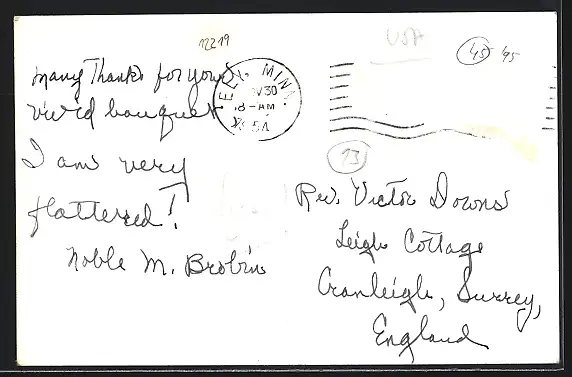 12219
USA
45 45
Many Thanks for your
vivid bouquet
I am very
flattered!
Noble M. Brobin
ELY, MINN.
NOV 30
8-AM
1954
13
Rev. Victor Downs
Leigh Cottage
Cranleigh, Surrey,
England